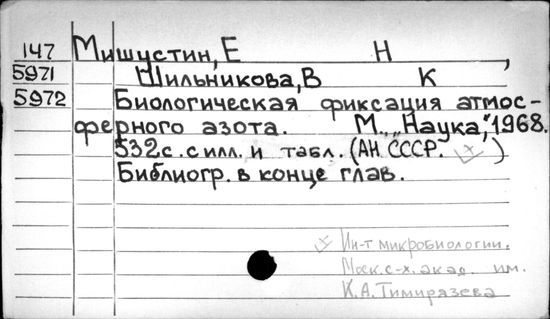 147 Мишустин, Е Н ,
5971 Шильникова, В К
5972 Биологическая фиксация атмос-
ферного азота. М., „Наука", 1968.
532 с. с илл. и табл. (АН СССР. )
Библиогр. в конце глав.
Ин-т микробиологии.
Моск. с-х. акад. им.
К. А. Тимирязева